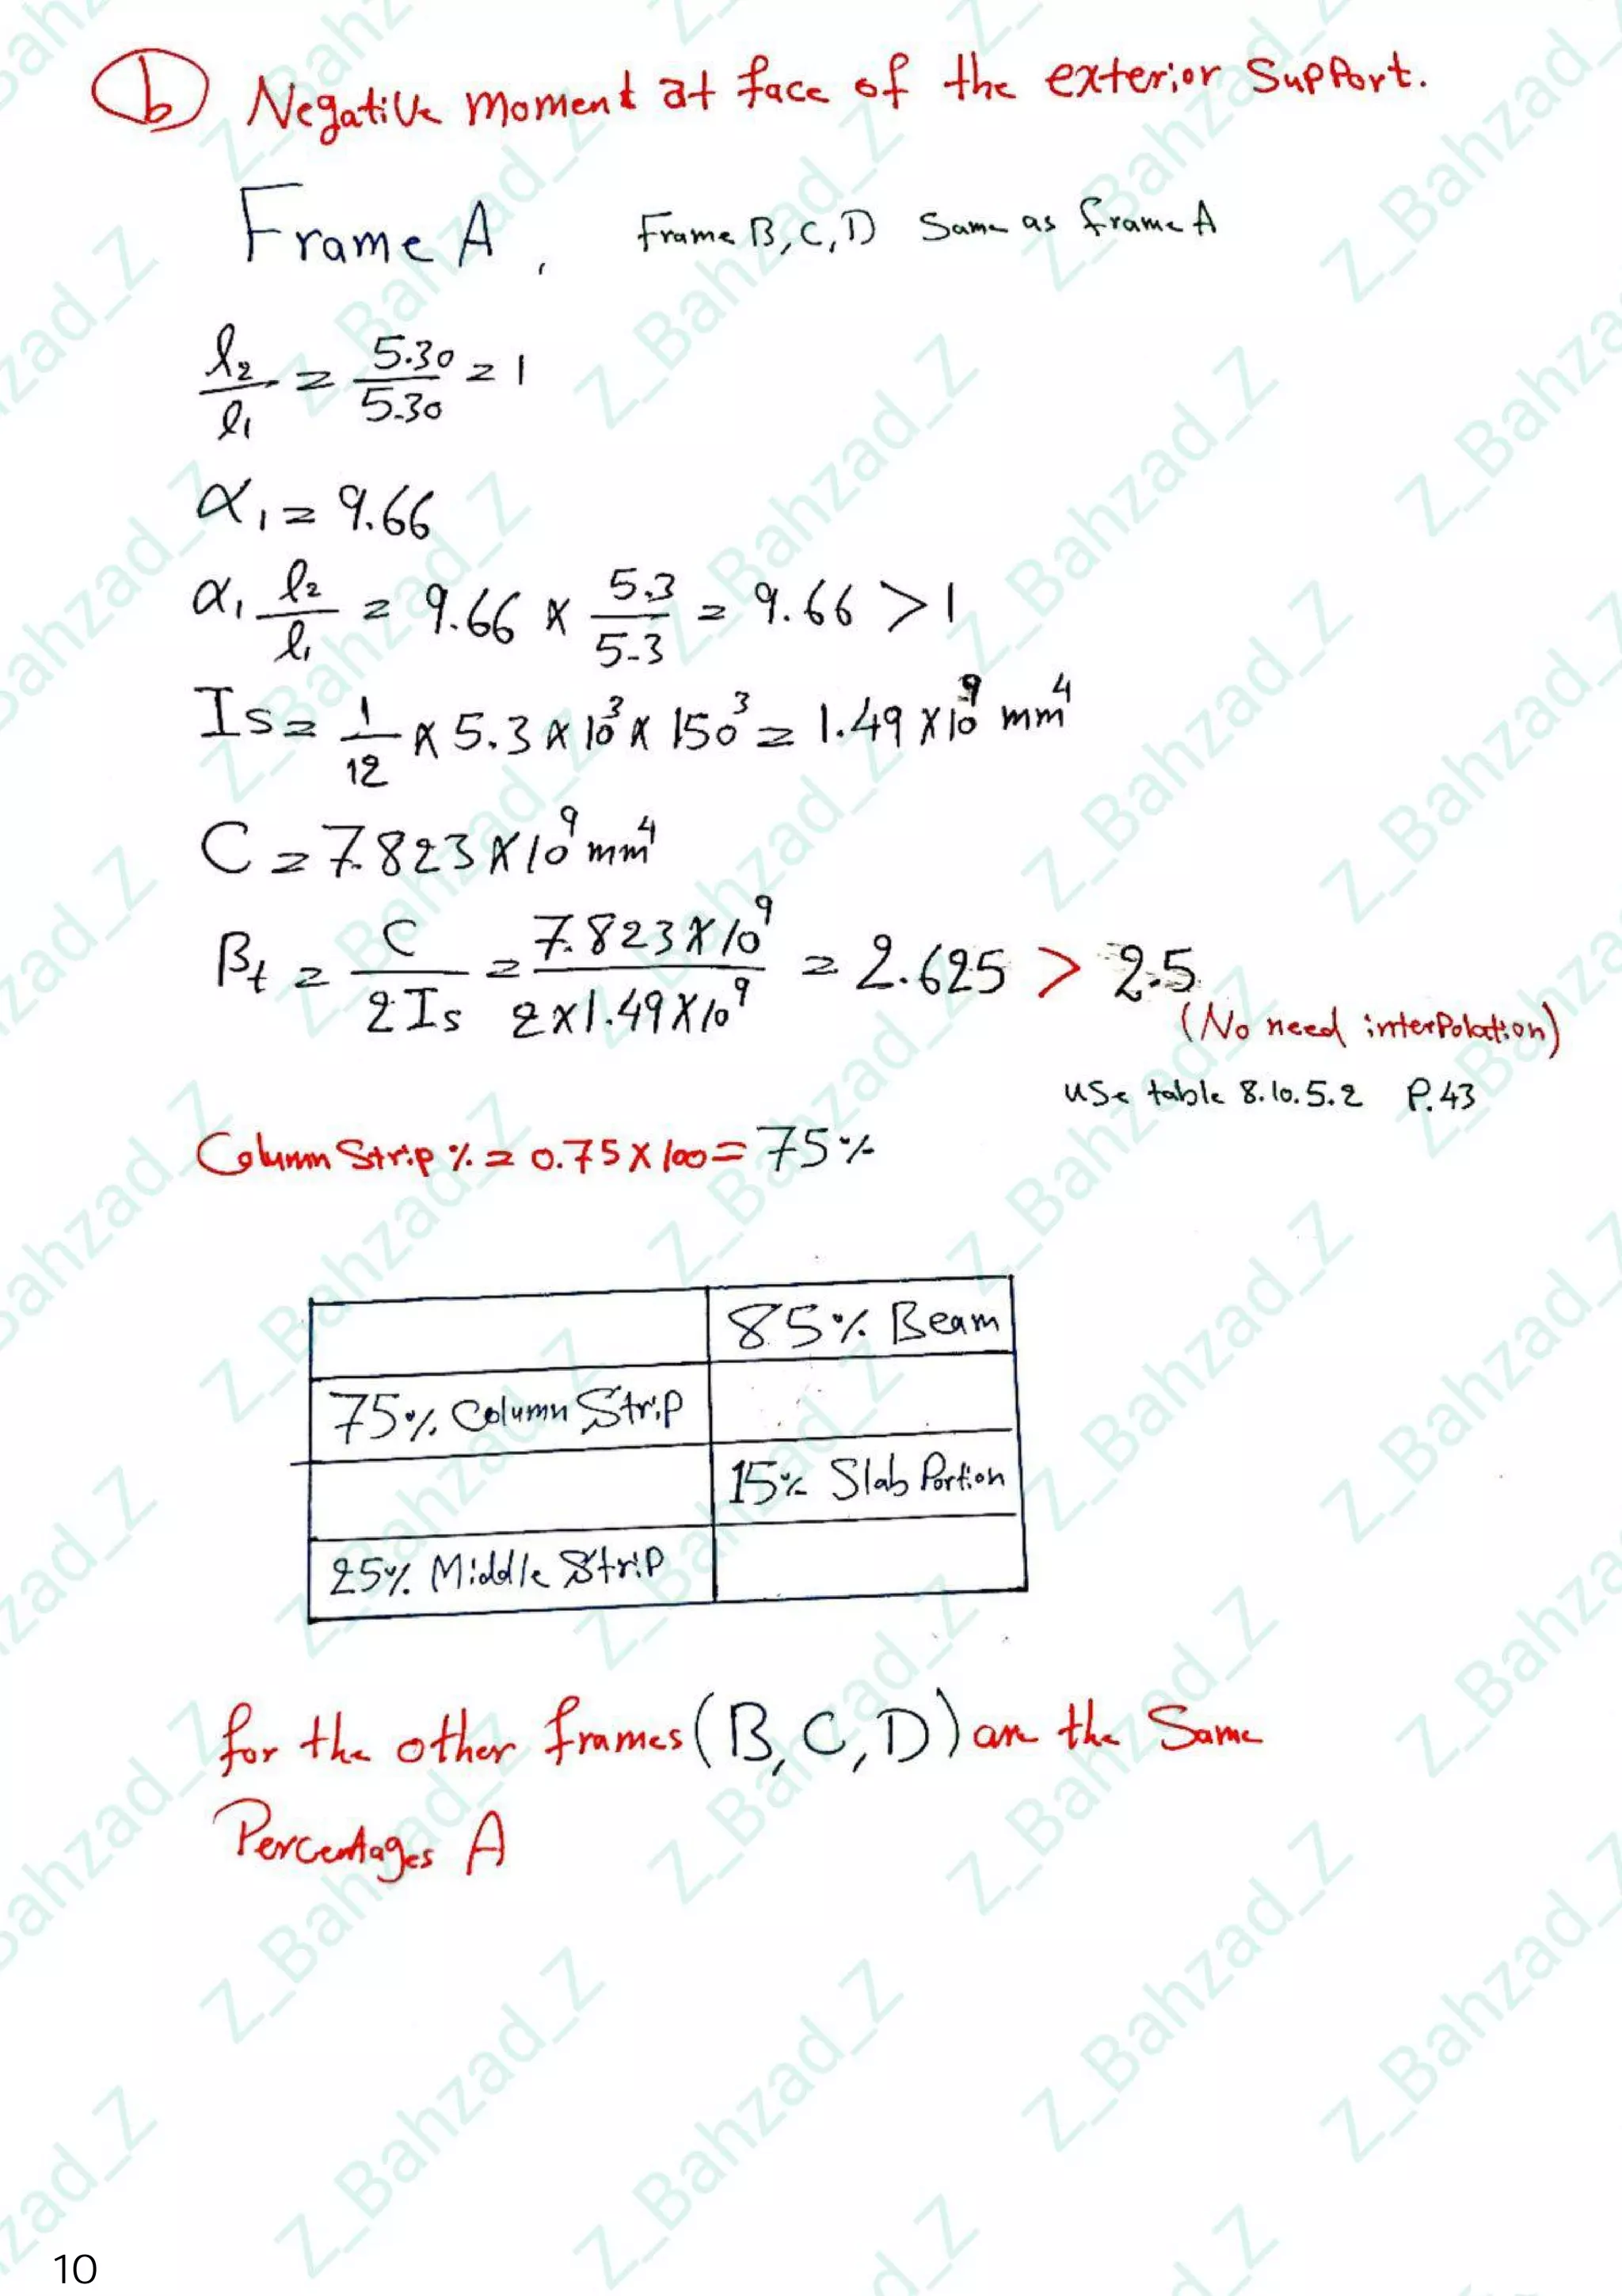 b Negative moment at face of the exterior Support.
Frame A, Frame B, C, D Same as frame A
l2/l1 = 5.30/5.30 = 1
α1 = 9.66
α1 l2/l1 = 9.66 x 5.3/5.3 = 9.66 > 1
Is = 1/12 x 5.3 x 10³ x 150³ = 1.49 x 10⁹ mm⁴
C = 7.823 x 10⁹ mm⁴
Bt = C/2Is = 7.823 x 10⁹/2 x 1.49 x 10⁹ = 2.625 > 2.5
(No need interpolation)
use table 8.10.5.2 P.43
Column Strip % = 0.75 x 100 = 75 %
85% Beam
75% Column Strip
15% Slab Portion
25% Middle Strip
for the other frames (B, C, D) are the Same
Percentages A
10
Z_Bahzad_Z